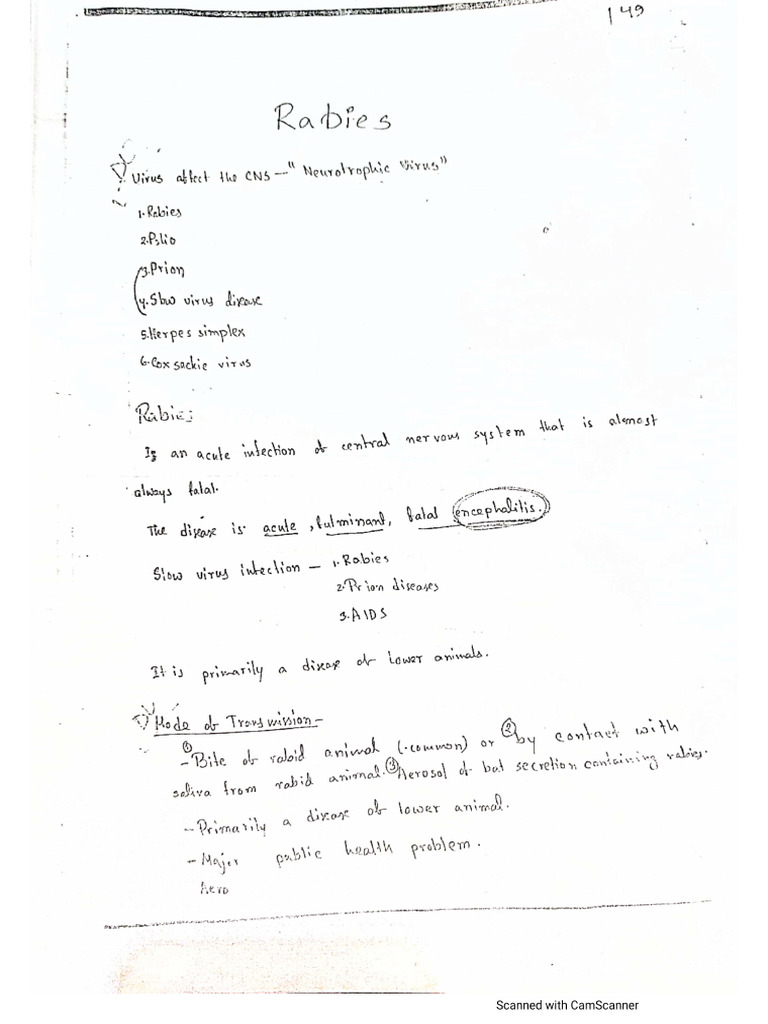 149
Rabies
Virus affect the CNS – "Neurotrophic Virus"
1. Rabies
2. Polio
3. Prion
4. Slow virus disease
5. Herpes simplex
6. Cox sackie virus
Rabies
Is an acute infection of central nervous system that is alemost
always fatal.
The disease is acute, fulminant, fatal encephalitis.
Slow virus infection – 1. Rabies
2. Prion diseases
3. AIDS
It is primarily a disease of lower animals.
Mode of Transmission –
① – Bite of rabid animal (common) or ② by contact with
saliva from rabid animal. ③ Aerosol of bat secretion containing rabies.
– Primarily a disease of lower animal.
– Major public health problem.
Aero
Scanned with CamScanner